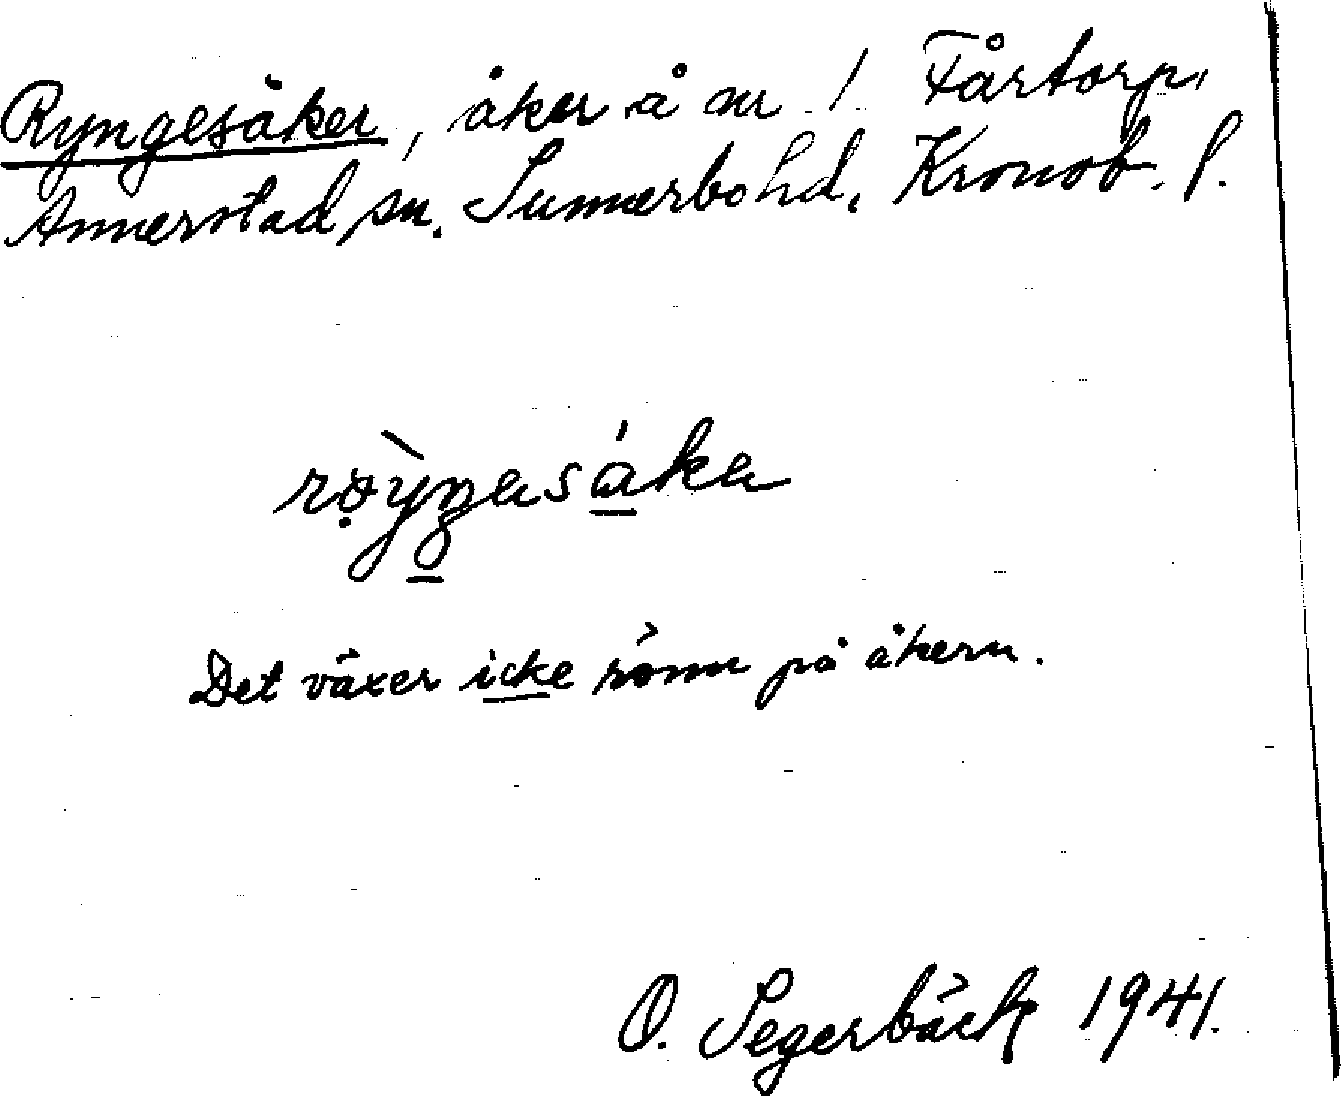 Ryngesåker, åker å nr 1 Fårtorp,
Annerstad sn. Sunnerbo hd, Kronob. l.
Det växer icke rönn på åkern.
O. Segerbäck 1941.